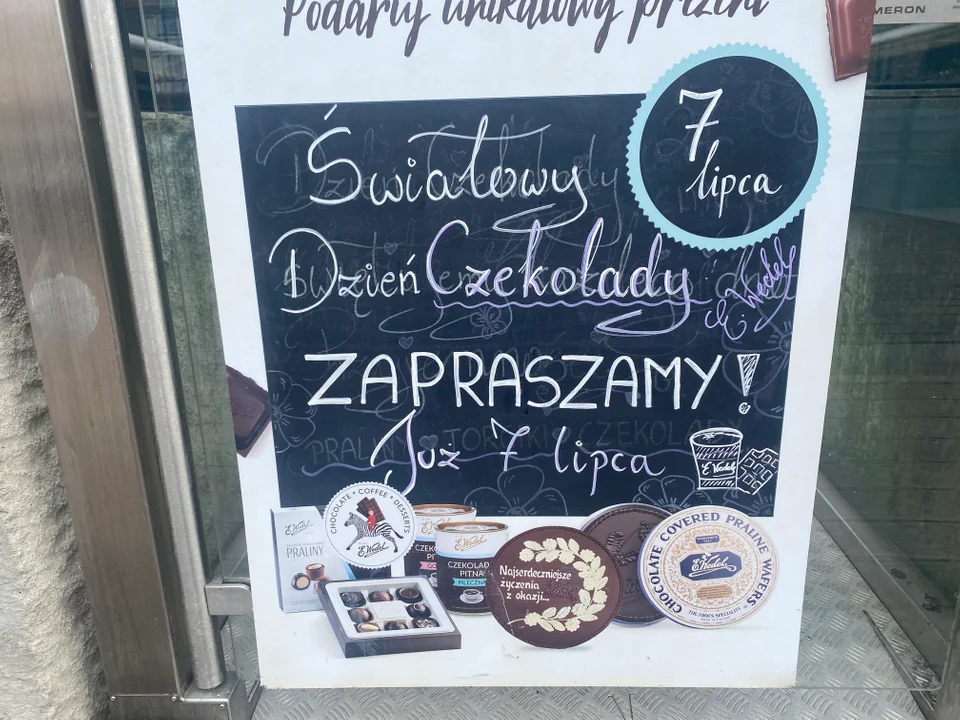 Podaruj unikatowy prezent
MERON
7
lipca
Światowy
Dzień Czekolady
E. Wedel
ZAPRASZAMY!
Już 7 lipca
E. Wedel
CHOCOLATE • COFFEE • DESSERTS
E. Wedel
E. Wedel
PRALINY
E. Wedel
CZEKOLADA
PITNA
MLECZNA
Najserdeczniejsze
życzenia
z okazji...
CHOCOLATE COVERED PRALINE WAFERS
E. Wedel
THE FIRM'S SPECIALITY